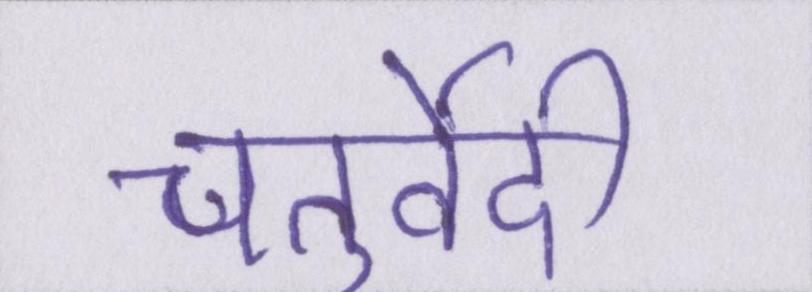 चतुर्वेदी